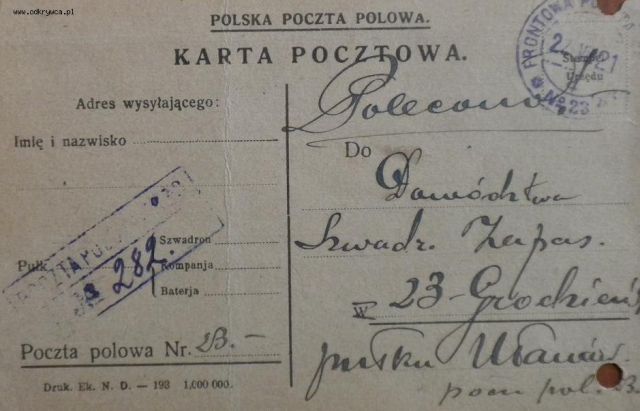 www.odkrywca.pl
POLSKA POCZTA POLOWA.
KARTA POCZTOWA.
FRONTOWA
Nº 23
Stempel
Urzędu
Adres wysyłającego:
Imię i nazwisko
Pułk
Szwadron
Kompanja
Baterja
282.
Poczta polowa Nr. 23.-
Druk. Ek. N. D. — 193 1,000 000.
Polecona
Do
Dowództwa
Szwadr. Zapas.
w 23-Grodzień
pułku Ułanów.
pocz pol. 23.